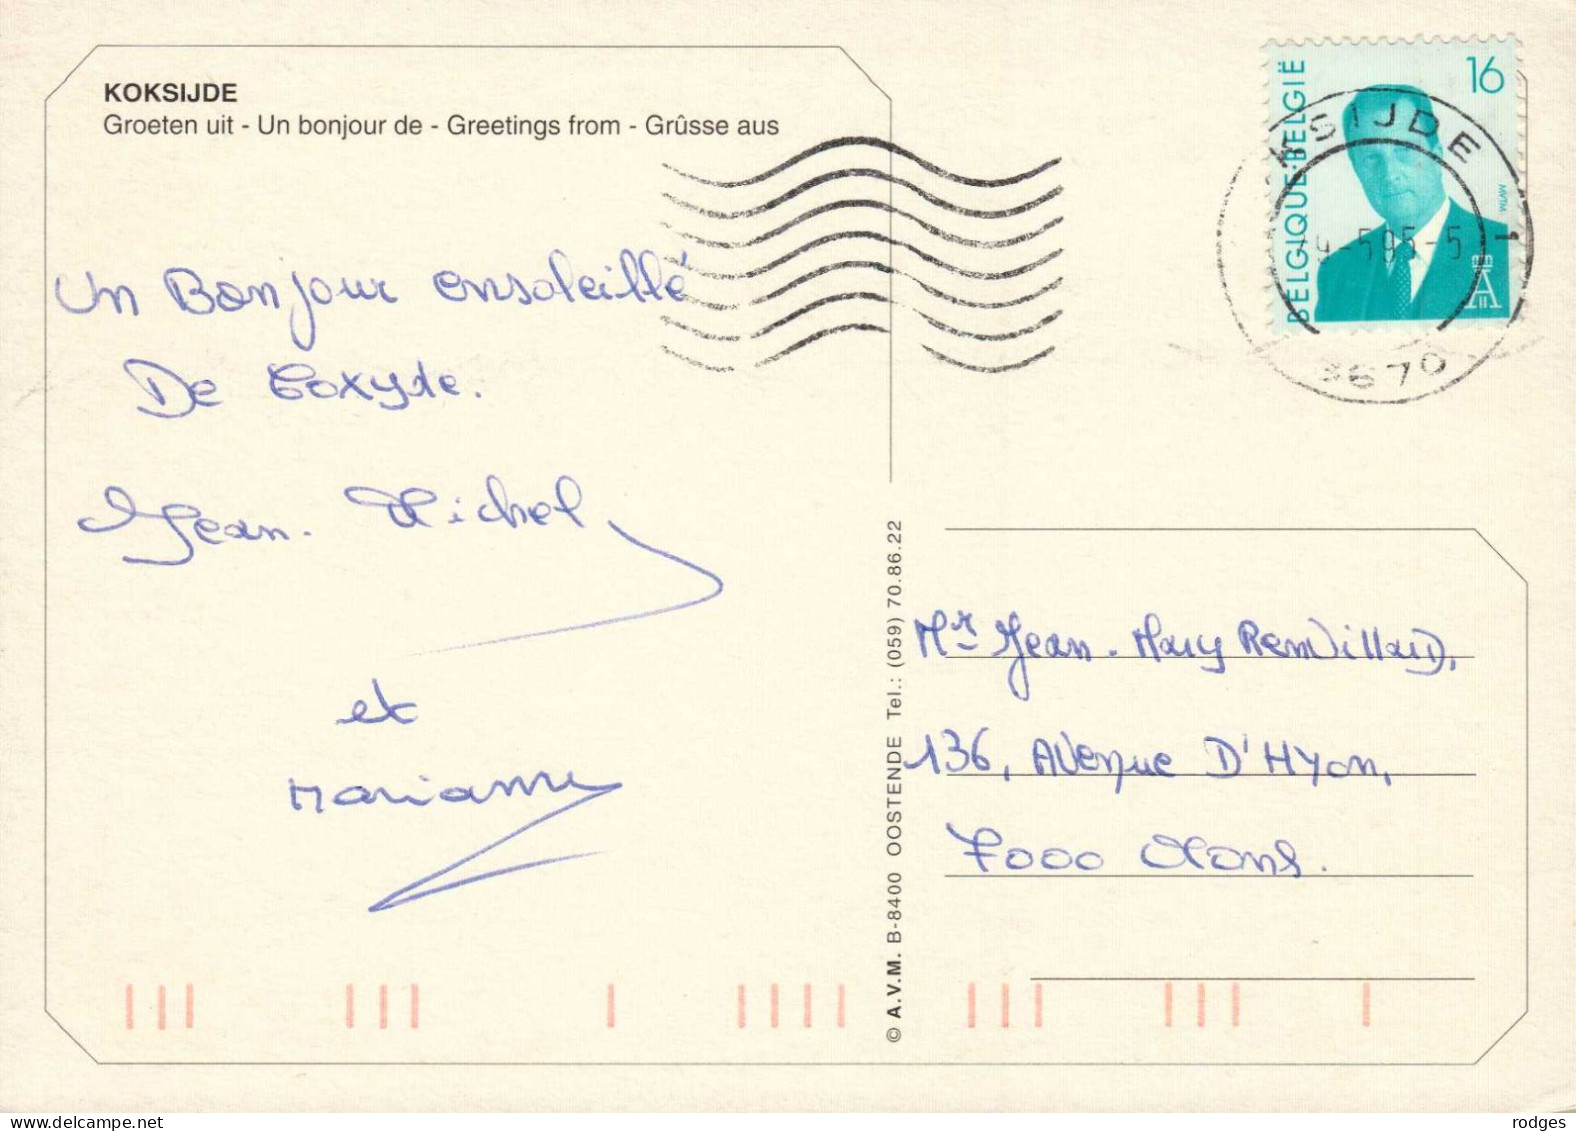 KOKSIJDE
Groeten uit - Un bonjour de - Greetings from - Grûsse aus
Un Bonjour ensoleillé
De Coxyde.
Jean-Michel
et
Marianne
BELGIQUE·BELGIË
16
MVTM
KSIJDE
5 95-5
1
8670
© A.V.M. B-8400 OOSTENDE Tel.: (059) 70.86.22
Mr Jean-Mary Remvillard,
136, Avenue D'Hyon,
7000 Mons.
delcampe.net
rodges